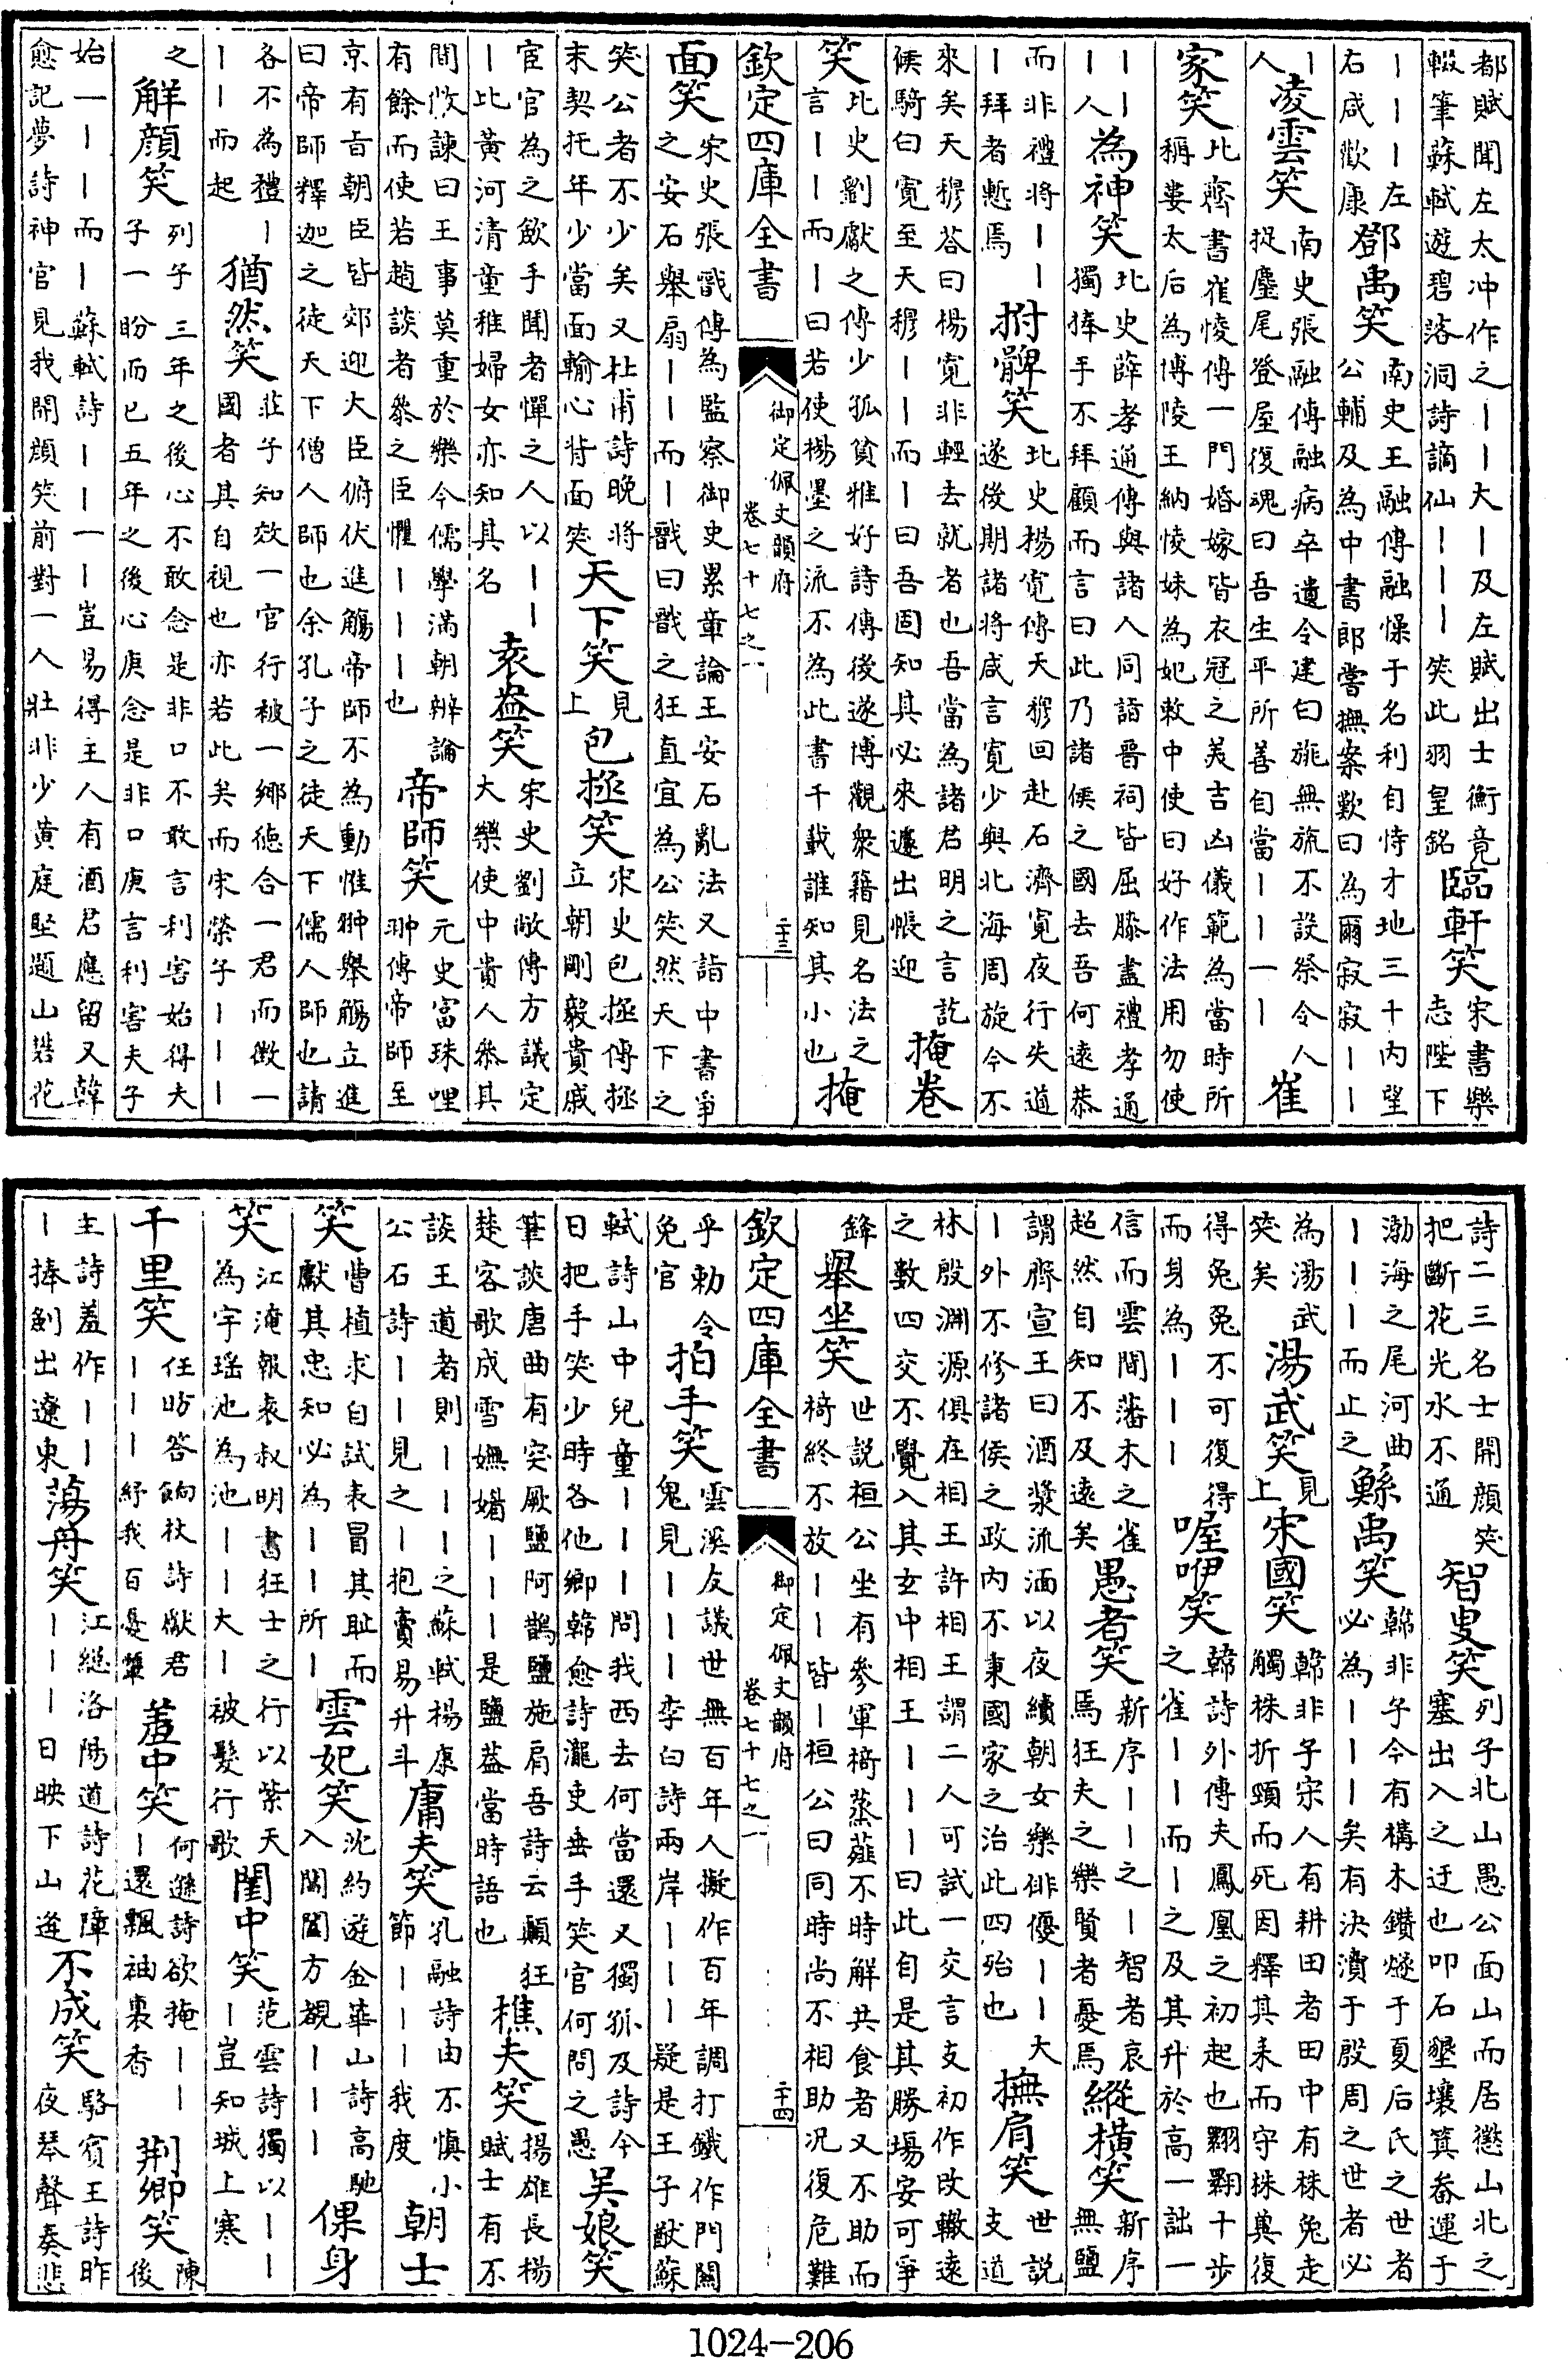 都賦聞左太冲作之丨丨大丨及左賦出士衡竟輟筆蘇軾遊碧落洞詩謫仙丨丨丨笑此羽皇銘 臨軒笑 宋書樂志陛下
丨丨丨左右咸歡康 鄧禹笑 南史王融傳融慄于名利自恃才地三十内望公輔及為中書郎嘗撫案歎曰為爾寂寂丨丨
丨人 凌雲笑 南史張融傳融病卒遺令建白旐無旒不設祭令人捉麈尾登屋復魂曰吾生平所善自當丨丨一丨 崔
家笑 北齊書崔㥄傳一門婚嫁皆衣冠之美吉凶儀範為當時所稱婁太后為博陵王納㥄妹為妃敕中使曰好作法用勿使
丨丨丨人 為神笑 北史薛孝通傳與諸人同詣晋祠皆屈膝盡禮孝通獨捧手不拜顧而言曰此乃諸侯之國去吾何遠恭
而非禮將丨丨丨拜者慙焉 拊髀笑 北史楊寛傳天穆回赴石濟寛夜行失道遂後期諸將咸言寛少與北海周旋今不
來矣天穆荅曰楊寛非輕去就者也吾當為諸君明之言訖候騎曰寛至天穆丨丨而丨曰吾固知其必來遽出帳迎 掩卷
笑 北史劉獻之傳少孤貧雅好詩傳後遂博觀衆籍見名法之言丨丨而丨曰若使楊墨之流不為此書千載誰知其小也 掩
欽定四庫全書 御定佩文韻府 卷七十七之一 二十三
面笑 宋史張戩傳為監察御史累章論王安石亂法又詣中書爭之安石舉扇丨丨而丨戩曰戩之狂直宜為公笑然天下之
笑公者不少矣又杜甫詩晚將末契托年少當面輸心背面笑 天下笑 見上 包拯笑 宋史包拯傳拯立朝剛毅貴戚
宦官為之歛手聞者憚之人以丨丨丨比黃河清童稚婦女亦知其名 袁盎笑 宋史劉敞傳方議定大樂使中貴人叅其
間攽諫曰王事莫重於樂今儒學滿朝辨論有餘而使若趙談者叅之臣懼丨丨丨也 帝師笑 元史富珠哩翀傳帝師至
京有旨朝臣皆郊迎大臣俯伏進觴帝師不為動惟翀舉觴立進曰帝師釋迦之徒天下僧人師也余孔子之徒天下儒人師也請
各不為禮丨丨丨而起 猶然笑 莊子知效一官行被一鄉徳合一君而徵一國者其自視也亦若此矣而宋榮子丨丨丨
之 解顔笑 列子三年之後心不敢念是非口不敢言利害始得夫子一盼而已五年之後心庚念是非口庚言利害夫子
始一丨丨而丨蘇軾詩丨丨一丨豈易得主人有酒君應留又韓愈記夢詩神官見我開顔笑前對一人壯非少黃庭堅題山礬花
詩二三名士開顔笑把斷花光水不通 智叟笑 列子北山愚公面山而居懲山北之塞出入之迂也叩石墾壤箕畚運于
渤海之尾河曲丨丨丨而止之 鯀禹笑 韓非子今有構木鑽燧于夏后氏之世者必為丨丨丨矣有決瀆于殷周之世者必
為湯武笑矣 湯武笑 見上 宋國笑 韓非子宋人有耕田者田中有株兔走觸株折頸而死因釋其耒而守株冀復
得兔兔不可復得而身為丨丨丨 喔咿笑 韓詩外傳夫鳳凰之初起也翾翾十步之雀丨丨而丨之及其升於高一詘一
信而雲間藩木之雀超然自知不及遠矣 愚者笑 新序丨丨之丨智者哀焉狂夫之樂賢者憂焉 縱橫笑 新序無鹽
謂齊宣王曰酒漿流湎以夜續朝女樂俳優丨丨大丨外不修諸侯之政内不秉國家之治此四殆也 撫肩笑 世説支道
林殷淵源俱在相王許相王謂二人可試一交言支初作改轍遠之數四交不覺入其玄中相王丨丨丨曰此自是其勝場安可爭
鋒 舉坐笑 世説桓公坐有參軍椅蒸薤不時解共食者又不助而椅終不放丨丨皆丨桓公曰同時尚不相助况復危難
欽定四庫全書 御定佩文韻府 卷七十七之一 二十四
乎勅令免官 拍手笑 雲溪友議世無百年人擬作百年調打鐵作門關鬼見丨丨丨李白詩兩岸丨丨丨疑是王子猷蘇
軾詩山中兒童丨丨丨問我西去何當還又獨孤及詩今日把手笑少時各他鄉韓愈詩瀧吏垂手笑官何問之愚 吴娘笑
筆談唐曲有突厥鹽阿鵲鹽施肩吾詩云顛狂楚客歌成雪嫵媚丨丨丨是鹽葢當時語也 樵夫笑 揚雄長楊賦士有不
談王道者則丨丨丨之蘇軾楊康公石詩丨丨丨見之丨抱賣易升斗 庸夫笑 孔融詩由不慎小節丨丨丨我度 朝士
笑 曹植求自試表冒其耻而獻其忠知必為丨丨所丨 雲妃笑 沈約遊金華山詩高馳入閶闔方覩丨丨丨 倮身
笑 江淹報袁叔明書狂士之行以紫天為宇瑶池為池丨丨大丨被髮行歌 閨中笑 范雲詩獨以丨丨丨豈知城上寒
千里笑 任昉答餉杖詩獻君丨丨丨紓我百憂嚬 羞中笑 何遜詩欲掩丨丨丨還飄袖裏香 荆卿笑 陳後
主詩羞作丨丨丨捧劍出遼東 蕩舟笑 江總洛陽道詩花障丨丨丨日映下山逢 不成笑 駱賓王詩昨夜琴聲奏悲
1024-206